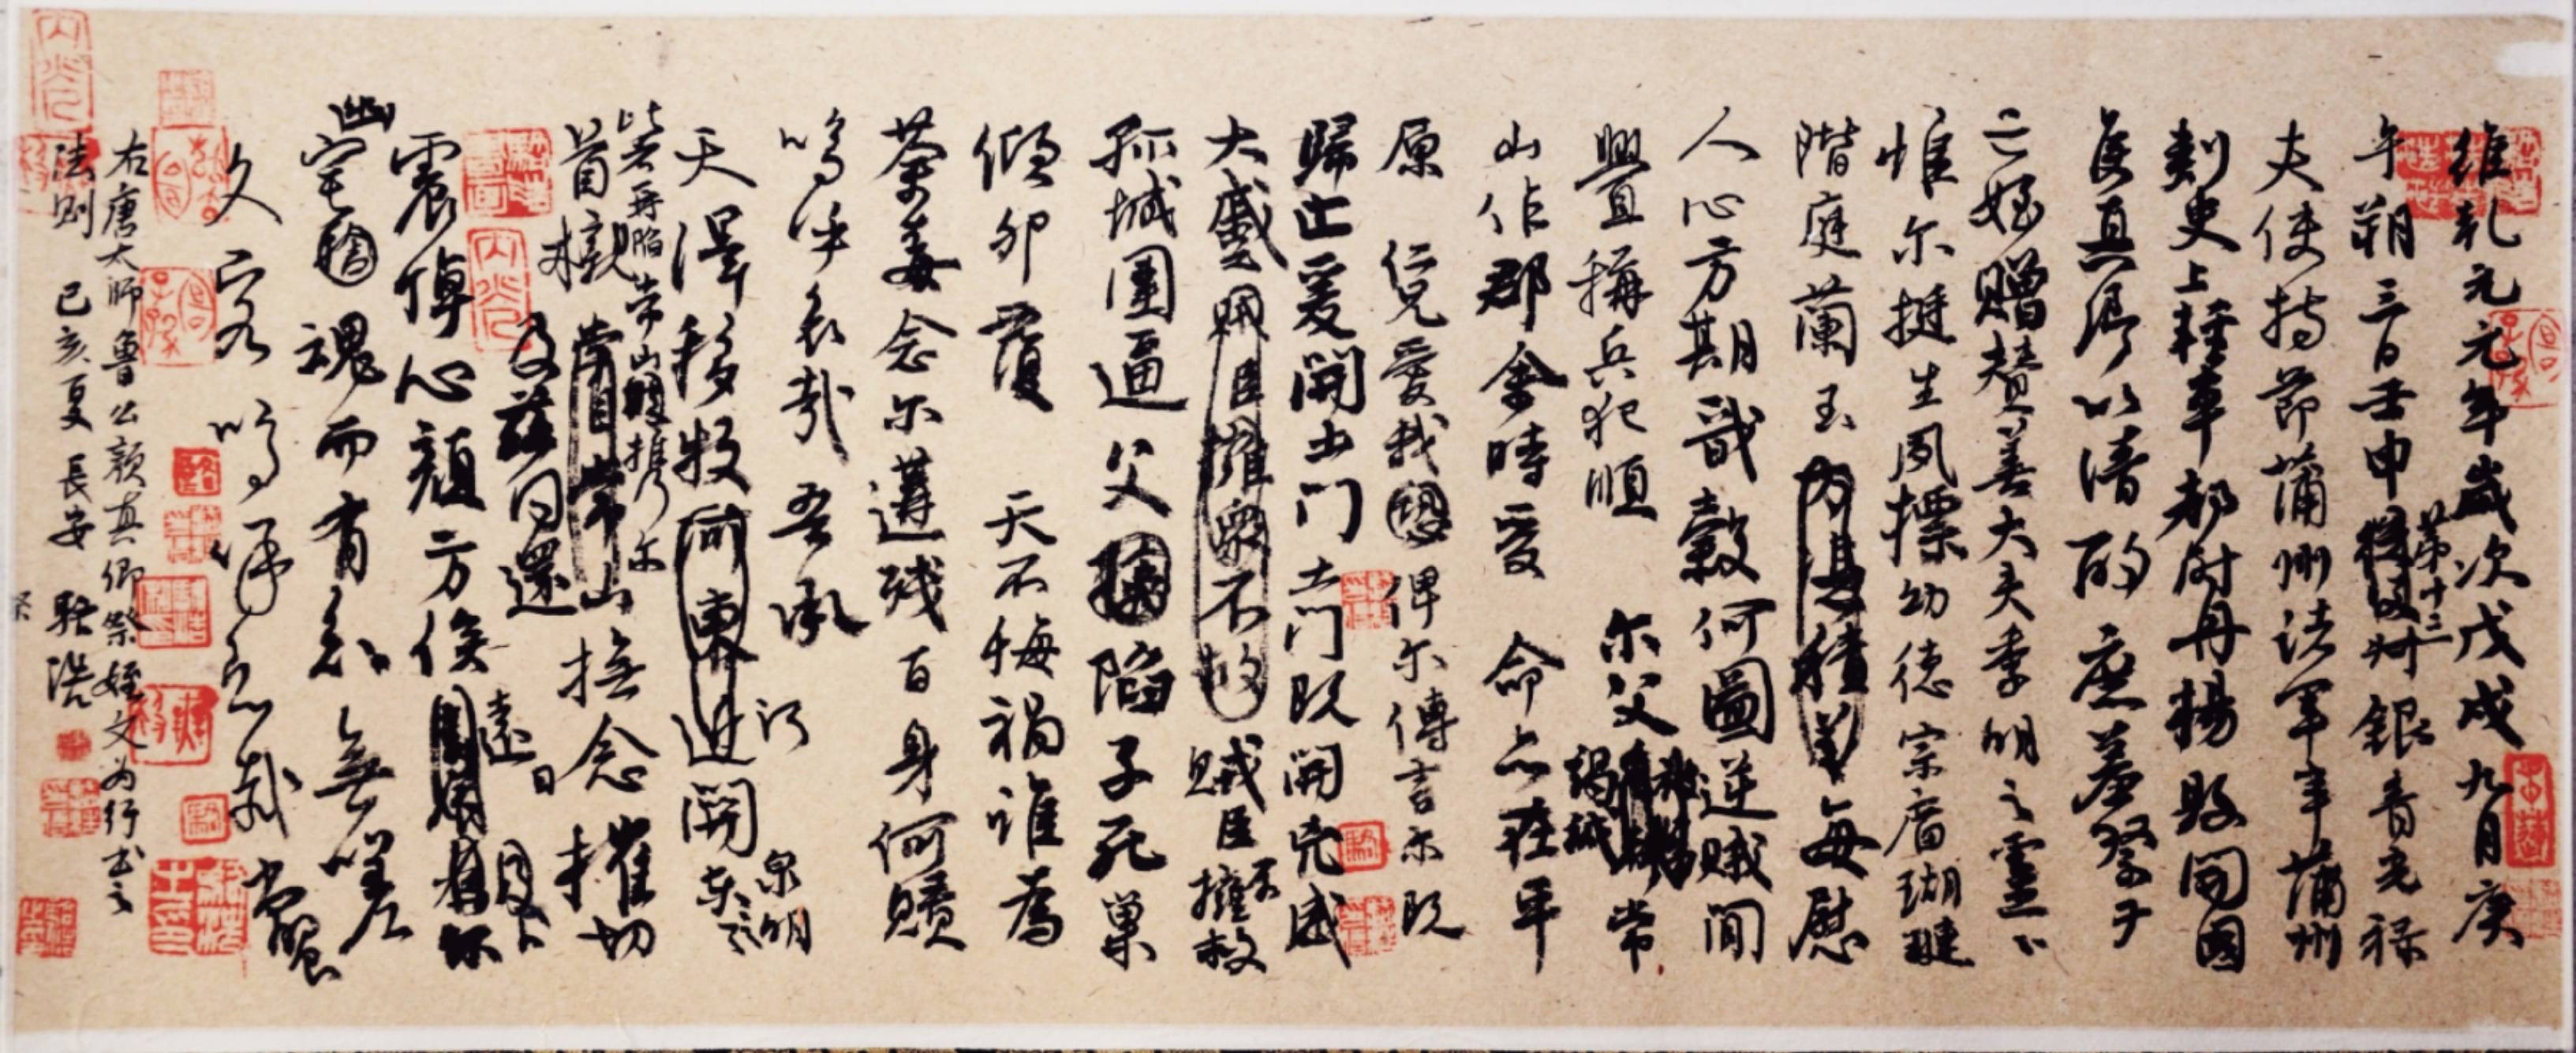 維乾元元年歲次戊戌九月庚
午朔三日壬申第十三叔銀青光祿
夫使持節蒲州諸軍事蒲州
刺史上輕車都尉丹楊縣開國
侯真卿以清酌庶羞祭于
亡姪贈贊善大夫季明之靈
惟爾挺生夙標幼德宗廟瑚璉
階庭蘭玉每慰
人心方期戩穀何圖逆賊間
釁稱兵犯順 爾父竭誠常
山作郡余時受 命亦在平
原 仁兄愛我俾爾傳言爾既
歸止爰開土門土門既開兇威
大蹙賊臣擁眾不救賊臣不擁救
孤城圍逼父陷子死巢
傾卵覆 天不悔禍誰為
荼毒念爾遘殘百身何贖
嗚呼哀哉吾承
天澤移牧河東近河關泉明
比者再陷常山攜爾
首櫬及茲同還撫念摧切
震悼心顏方俟遠日
幽宅魂而有知無嗟
久客嗚呼哀哉尚饗
右唐太師魯公顏真卿祭姪文為行書之
法則 己亥夏 長安 駱浩